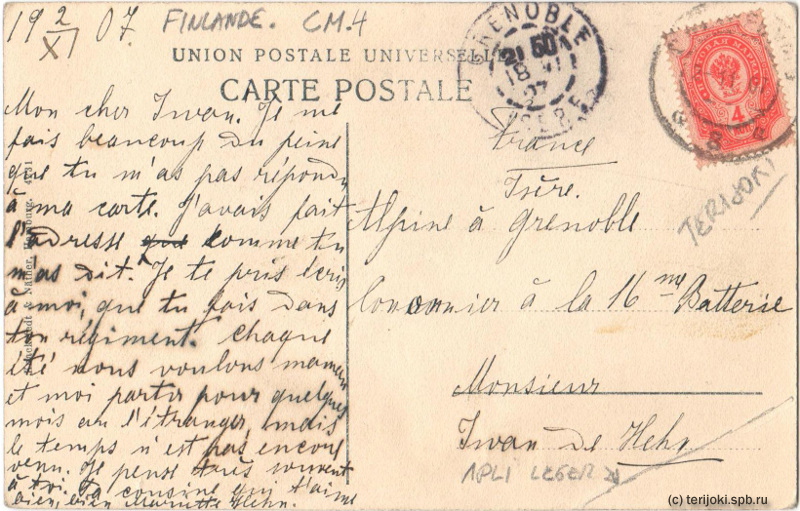 19 2/XI 07.
FINLANDE. CM.4
UNION POSTALE UNIVERSELLE
CARTE POSTALE
GRENOBLE
ISERE
4
TERIJOKI
Mon cher Iwan. Je me
fais beaucoup du peine
que tu m'as pas répondu
à ma carte. J'avais fait
l'adresse comme tu
m'as dit. Je te pris écris
à moi, que tu fais dans
ton régiment. Chaque
été nous voulons maman
et moi partir pour quelques
mois au l'étranger, mais
le temps n'est pas encore
venu. Je pense très souvent
à toi. Ta cousine qui t'aime
bien, bien Mariette Hehn.
France
Isère.
Alpine à Grenoble
Canonnier à la 16 me Batterie
Monsieur
Iwan de Hehn
APLI LEGER
(c) terijoki.spb.ru